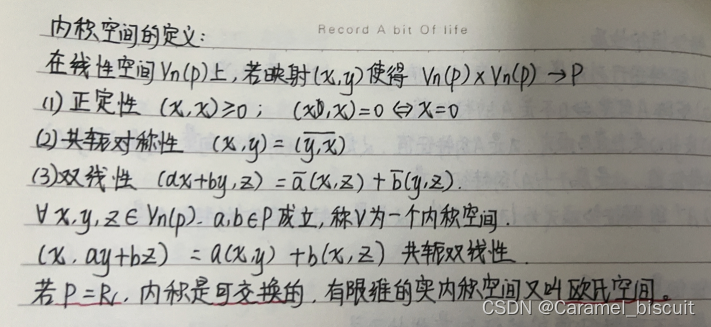 Record A bit Of life
内积空间的定义:
在线性空间Vn(p)上,若映射(x,y)使得 Vn(p)×Vn(p)→P
(1) 正定性 (x,x)≥0; (x,x)=0⇔x=0
(2)共轭对称性 (x,y)=(\overline{y,x})
(3)双线性 (ax+by,z)=\overline{a}(x,z)+\overline{b}(y,z).
∀x,y,z∈Vn(p).a,b∈P成立,称V为一个内积空间.
(x.ay+bz)=a(x,y)+b(x,z)共轭双线性.
若P=R,内积是可交换的,有限维的实内积空间又叫欧氏空间。
CSDN @Caramel_biscuit